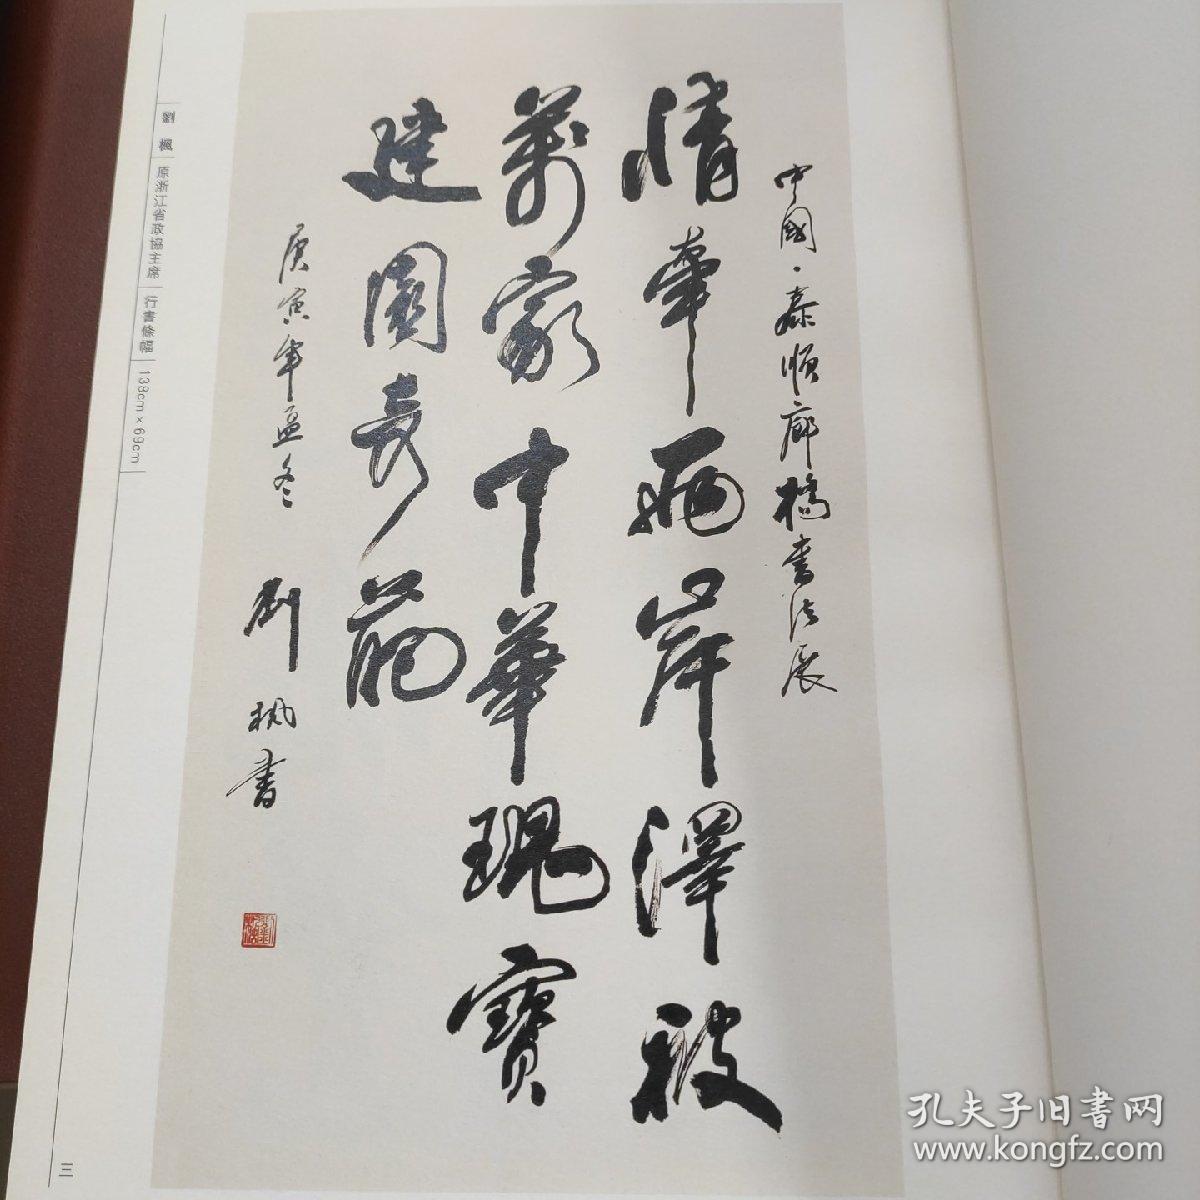 中國·泰順廊橋書法展
情牽兩岸澤被
萬家中華瑰寶
建園奇葩
庚寅年孟冬 劉楓書
劉楓 | 原浙江省政協主席 | 行書條幅 | 138cm×69cm
三
孔夫子旧书网
www.kongfz.com